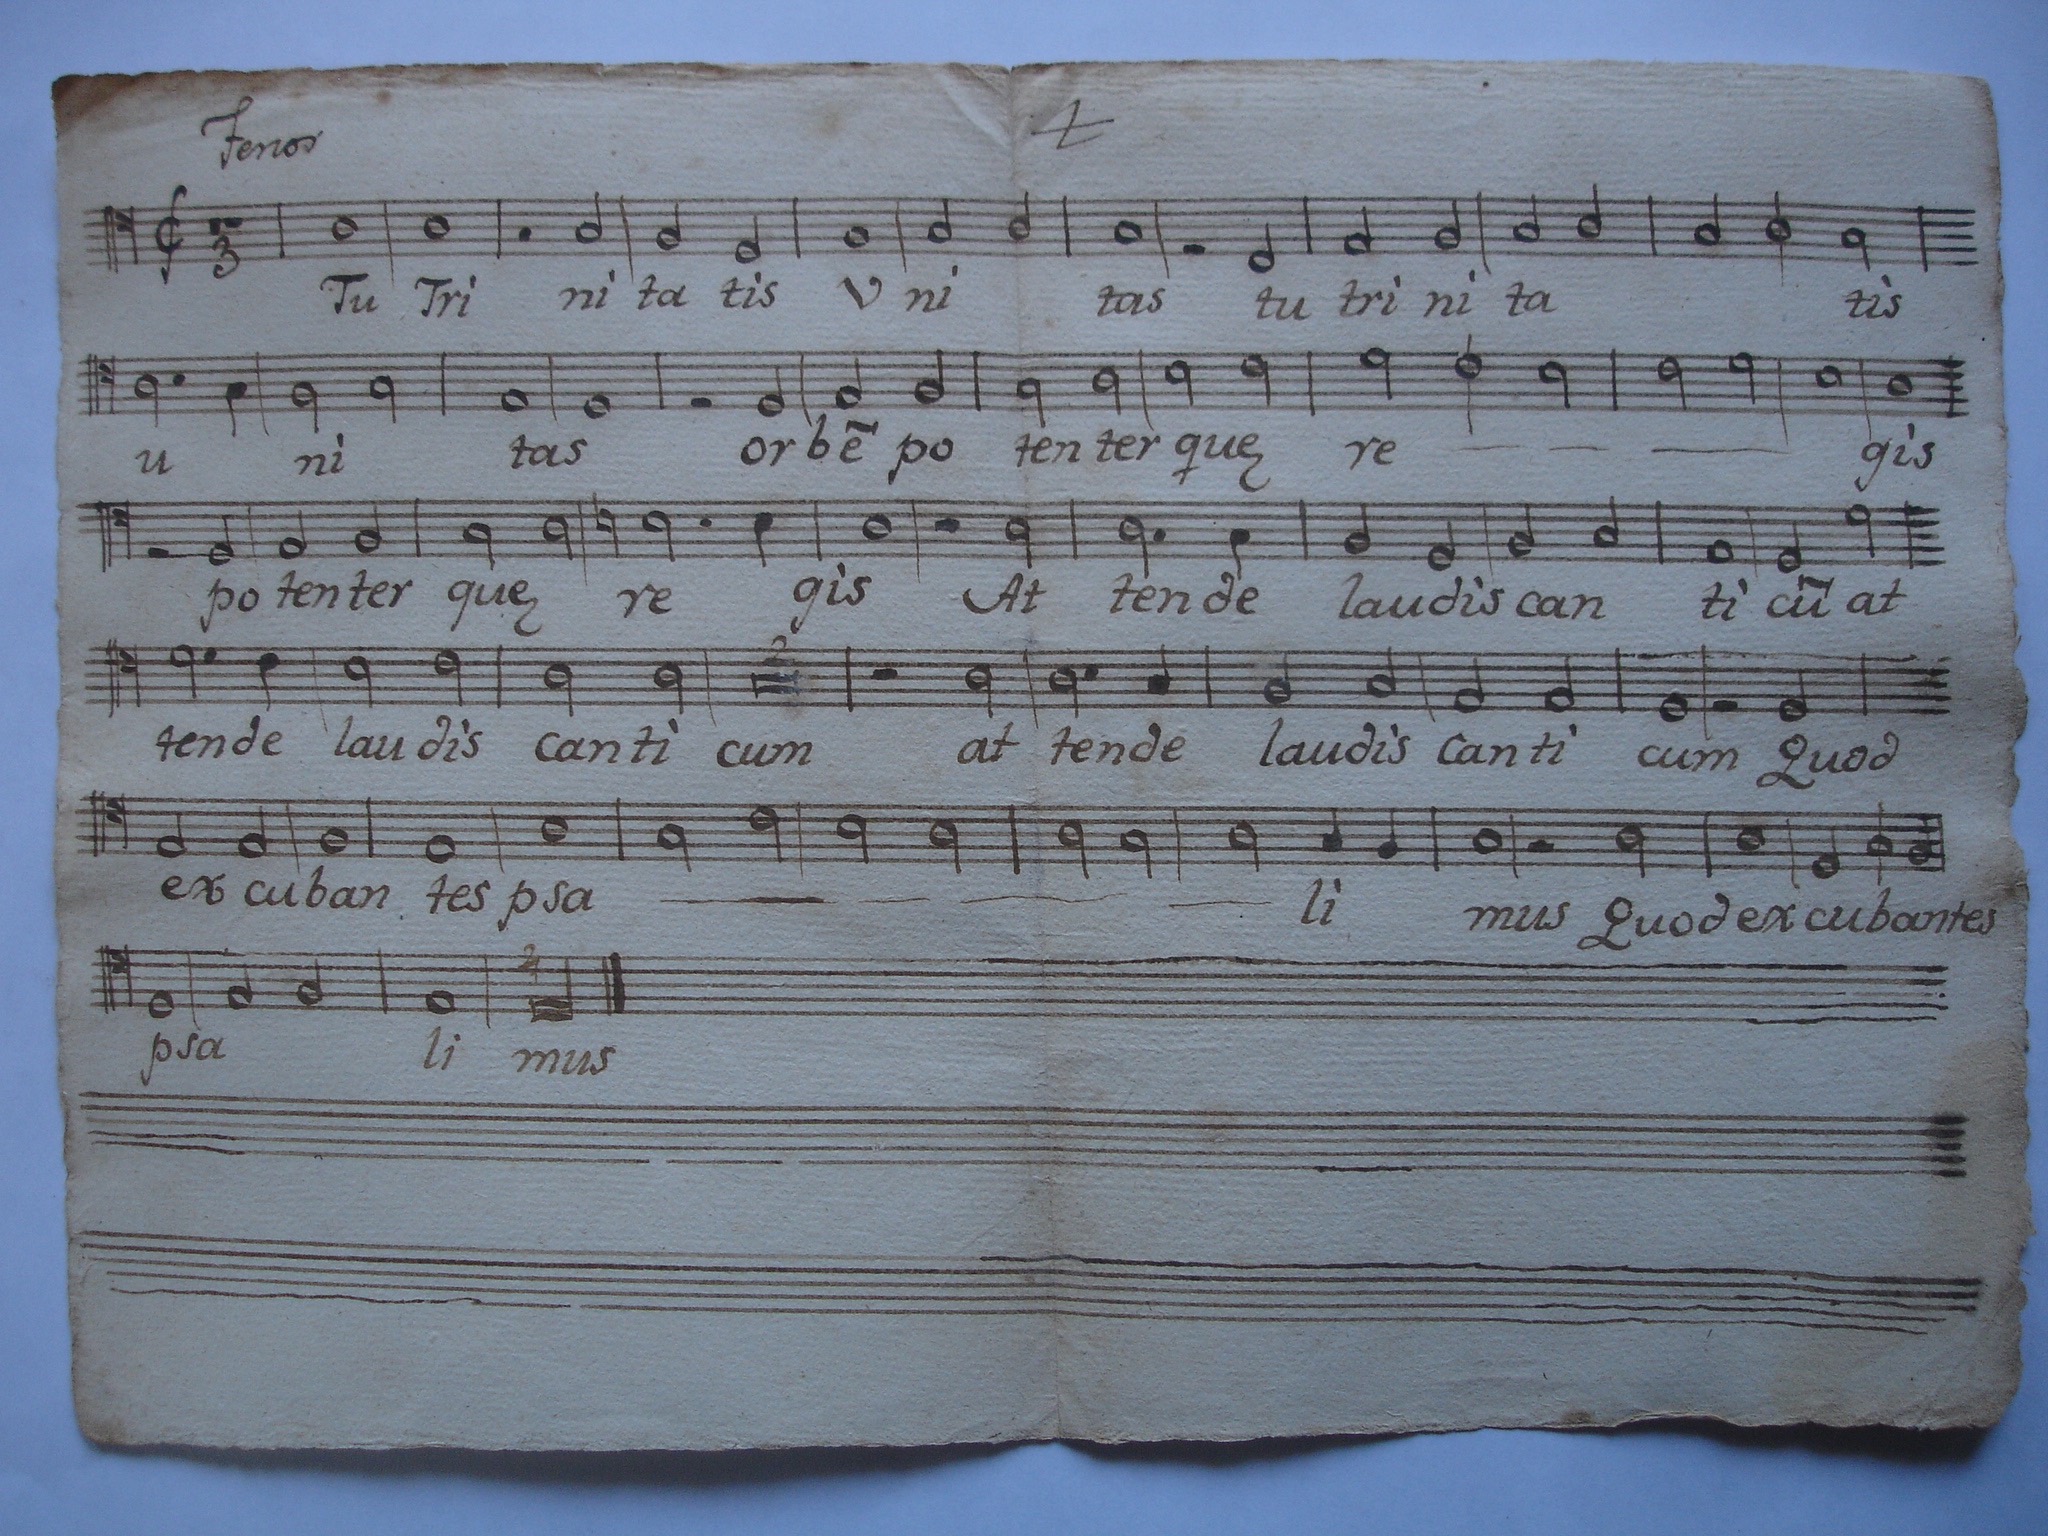 Tenor
3
Tu Tri ni ta tis V ni tas tu tri ni ta tis
u ni tas or bẽ po ten ter quę re gis
po ten ter quę re gis At ten de lau dis can ti cũ at
2
ten de lau dis can ti cum at ten de lau dis can ti cum Quod
ex cu ban tes psa li mus Quod ex cu bantes
2
psa li mus